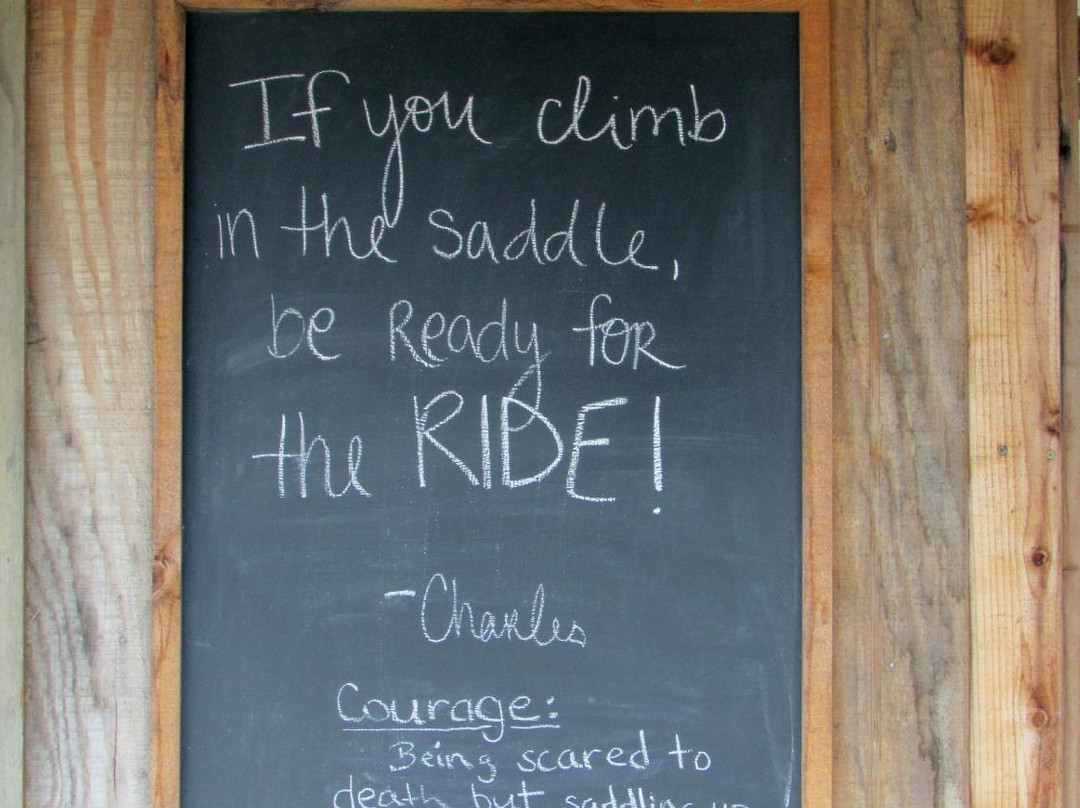 If you climb
in the saddle,
be Ready for
the RIDE!
-Charles
Courage:
Being scared to
death but saddling up